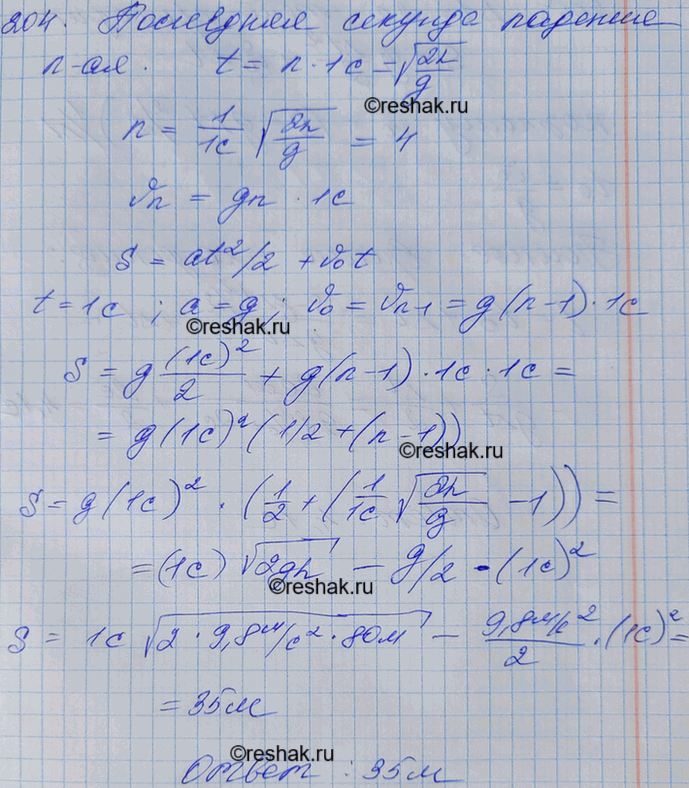 204. Последняя секунда падения
n-ая. t = n · 1с = √(2h/g)
©reshak.ru
n = 1/1с √(2h/g) = 4
vn = gn · 1с
S = at²/2 + v₀t
t = 1с ; a = g ; v₀ = vn-1 = g(n-1) · 1с
©reshak.ru
S = g (1с)²/2 + g(n-1) · 1с · 1с =
= g(1с)² (1/2 + (n-1))
©reshak.ru
S = g(1с)² · (1/2 + (1/1с √(2h/g) - 1)) =
= (1с) √2gh - g/2 · (1с)²
©reshak.ru
S = 1с √2 · 9,8м/с² · 80м - 9,8м/с²/2 · (1с)² =
= 35м
©reshak.ru
Ответ : 35м